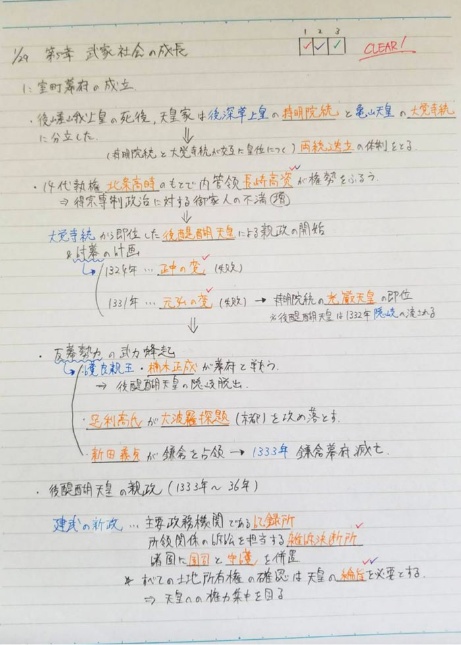 1 2 3
1/29 第5章 武家社会の成長 CLEAR!
1: 室町幕府の成立
・後嵯峨上皇の死後、天皇家は後深草上皇の持明院統と亀山天皇の大覚寺統
に分立した.
⇓
(持明院統と大覚寺統が交互に皇位につく) 両統迭立の体制をとる
・14代執権 北条高時のもとで内管領長崎高資が権勢をふるう
⇒ 得宗専制政治に対する御家人の不満(増)
⇓
大覚寺統から即位した後醍醐天皇による親政の開始
※討幕の計画
1324年 … 正中の変 (失敗)
1331年 … 元弘の変 (失敗) → 持明院統の光厳天皇の即位
※後醍醐天皇は1332年 隠岐へ流される
⇓
・反幕勢力の武力蜂起
護良親王・楠木正成が幕府と戦う.
→ 後醍醐天皇の隠岐脱出.
・足利高氏が六波羅探題 (京都)を攻め落とす.
・新田義貞が鎌倉を占領 → 1333年 鎌倉幕府滅亡.
・後醍醐天皇の親政 (1333年〜36年)
建武の新政 … 主要政務機関である記録所
所領関係の訴訟を担当する雑訴決断所
諸国に国司と守護を併置
* すべての土地所有権の確認は天皇の綸旨を必要とする.
⇒ 天皇への権力集中を図る